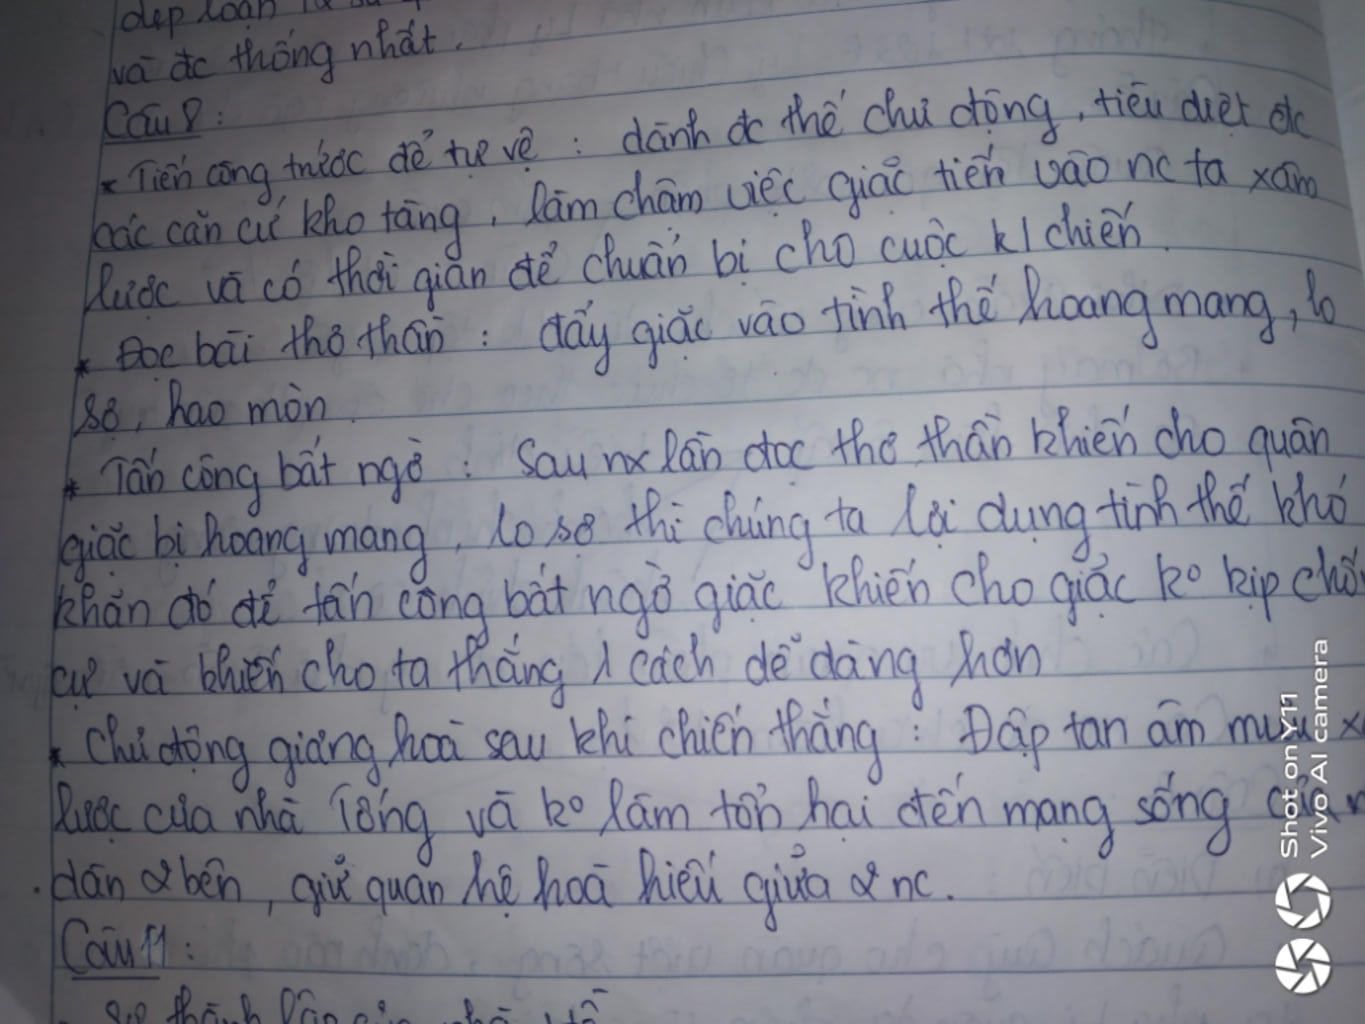 dẹp loạn
và đc thống nhất.
Câu 8:
* Tiến công trước để tự vệ : dành đc thế chủ động, tiêu diệt đc
các căn cứ kho tàng, làm chậm việc giặc tiến vào nc ta xâm
lược và có thời gian để chuẩn bị cho cuộc k/chiến.
* Đọc bài thơ thần : đẩy giặc vào tình thế hoang mang, lo
sợ, hao mòn.
* Tấn công bất ngờ : Sau nx lần đọc thơ thần khiến cho quân
giặc bị hoang mang, lo sợ thì chúng ta lợi dụng tình thế khó
khăn đó để tấn công bất ngờ giặc khiến cho giặc ko kịp
cự và khiến cho ta thắng 1 cách dễ dàng hơn
* Chủ động giảng hoà sau khi chiến thắng : Đập tan âm mưu
lược của nhà Tống và ko làm tổn hại đến mạng sống của
dân 2 bên, giữ quan hệ hoà hiếu giữa 2 nc.
Câu 11:
thành lập
Shot on Y11
Vivo AI camera